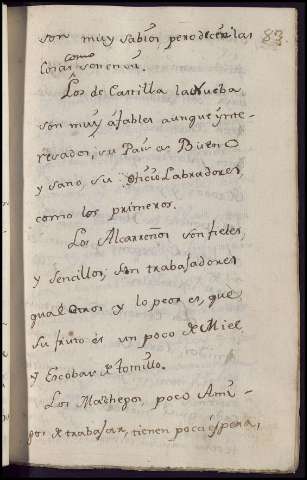 83
son muy sabios pero decen las
como
Cosas son en su.
Los de Castilla la Nueba
son muy afables aunque ynte-
resados, su Pais as Bueno
y sano, su oficio Labradores
como los primeros.
Los Alcarreños son fieles,
y sencillos; son trabajadores
qual otros y lo peor es, que
su fruto es un poco de Miel
y Escobas de tomillo.
Los Machegos, poco Ami-
gos de trabajar, tienen poca espera,